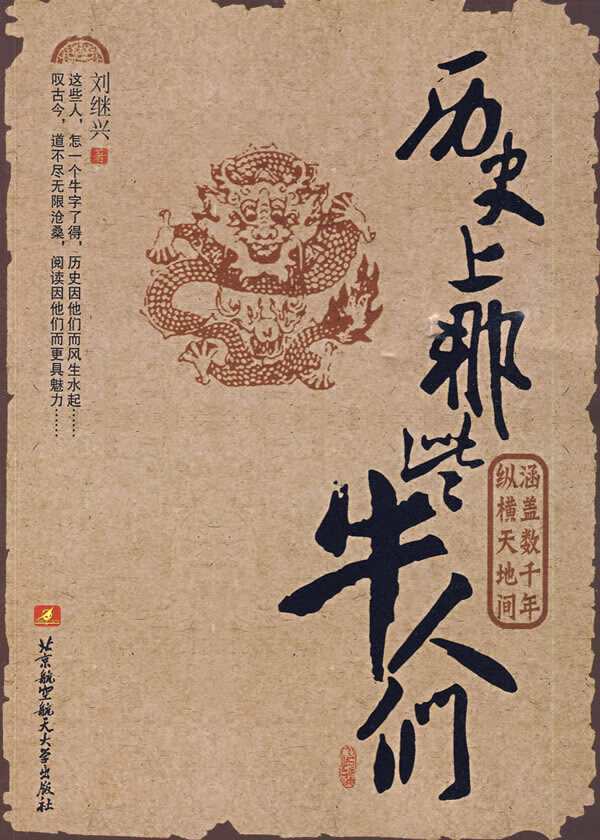 历史上那些牛人们
涵盖数千年
纵横天地间
刘继兴 著
这些人，怎一个牛字了得，历史因他们而风生水起……
叹古今，道不尽无限沧桑，阅读因他们而更具魅力……
北京航空航天大学出版社